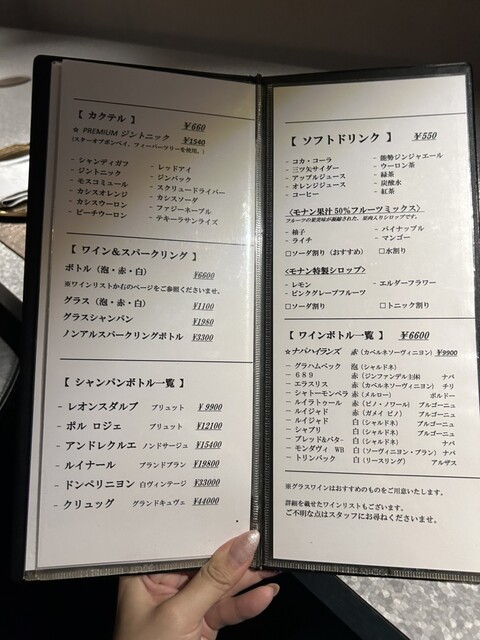 【 カクテル 】 ¥660
☆ PREMIUM ジントニック ¥1540
(スターオブボンベイ、フィーバーツリーを使用。)
- シャンディガフ
- ジントニック
- モスコミュール
- カシスオレンジ
- カシスウーロン
- ピーチウーロン
- レッドアイ
- ジンバック
- スクリュードライバー
- カシスソーダ
- ファジーネーブル
- テキーラサンライズ
【 ワイン&スパークリング 】
ボトル (泡・赤・白) ¥6600
※ワインリストか右のページをご参照くださいませ。
グラス (泡・赤・白) ¥1100
グラスシャンパン ¥1980
ノンアルスパークリングボトル ¥3300
【 シャンパンボトル一覧 】
- レオンスダルブ ブリュット ¥ 9900
- ポル ロジェ ブリュット ¥12100
- アンドレクルエ ノンドサージュ ¥15400
- ルイナール ブランドブラン ¥19800
- ドンペリニヨン 白ヴィンテージ ¥33000
- クリュッグ グランドキュヴェ ¥44000
【 ソフトドリンク 】 ¥550
- コカ・コーラ
- 三ツ矢サイダー
- アップルジュース
- オレンジジュース
- コーヒー
- 能勢ジンジャエール
- ウーロン茶
- 緑茶
- 炭酸水
- 紅茶
<モナン果汁50%フルーツミックス>
フルーツの果実味が凝縮された、果肉入りシロップです。
- 柚子
- ライチ
- パイナップル
- マンゴー
□ソーダ割り (おすすめ) □水割り
<モナン特製シロップ>
- レモン
- ピンクグレープフルーツ
- エルダーフラワー
□ソーダ割り □トニック割り
【 ワインボトル一覧 】 ¥6600
☆ナパハイランズ 赤 (カベルネソーヴィニヨン) ¥9900
- グラハムベック 泡 (シャルドネ)
- 689 赤 (ジンファンデル主体) ナパ
- エラスリス 赤 (カベルネソーヴィニヨン) チリ
- シャトーモンペラ 赤 (メルロー) ボルドー
- ルイラトゥール 赤 (ピノ・ノワール) ブルゴーニュ
- ルイジャド 赤 (ガメイ ピノ) ブルゴーニュ
- ルイジャド 白 (シャルドネ) ブルゴーニュ
- シャブリ 白 (シャルドネ) ブルゴーニュ
- ブレッド&バター 白 (シャルドネ) ナパ
- モンダヴィ WB 白 (ソーヴィニヨン・ブラン) ナパ
- トリンバック 白 (リースリング) アルザス
※グラスワインはおすすめのものをご用意いたします。
詳細を載せたワインリストもございます。
ご不明な点はスタッフにお尋ねくださいませ。